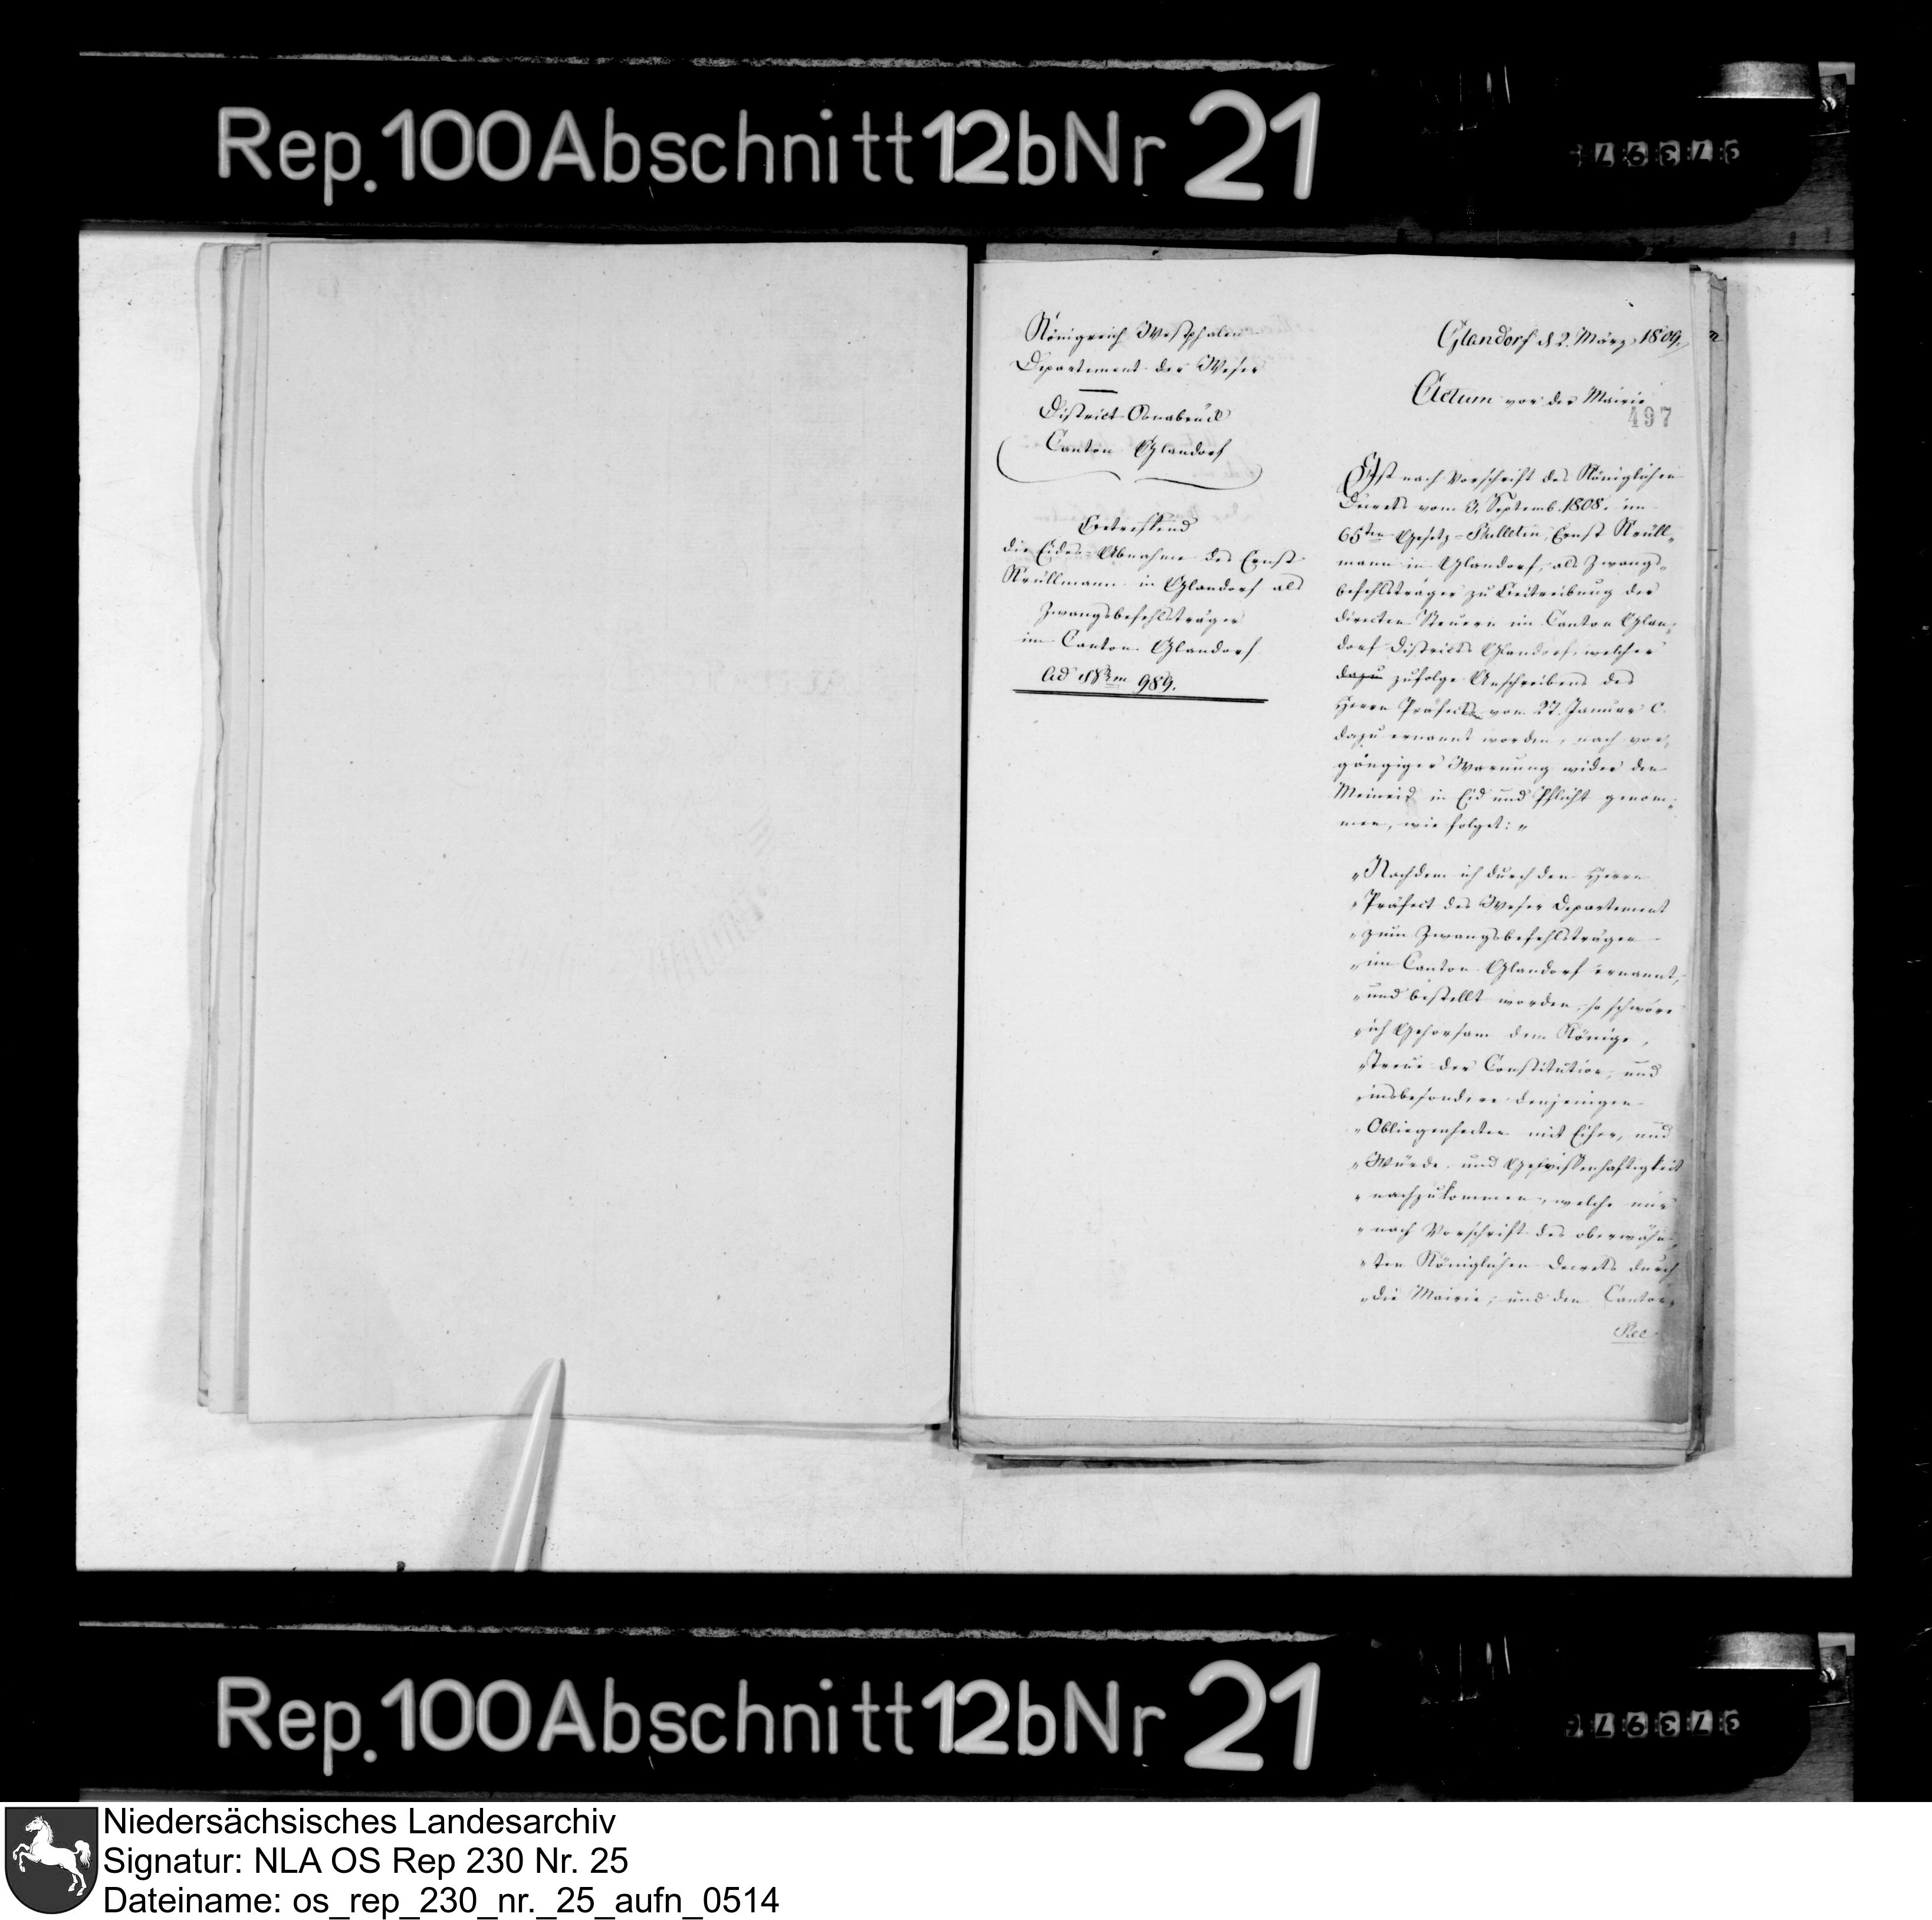 Rep. 100 Abschnitt 12b Nr 21
Königreich Westphalen
Departement der Weser
District Osnabrück
Canton Glandorf
Betreffend
die Eides-Abnahme des Ernst
Krüllmann in Glandorf als
Zwangsbefehlsträger
im Canton Glandorf
Ad Num 989.
Glandorf d 2. März 1809.
Actum vor der Mairie
497
Ist nach Vorschrift des Königlichen
Decrets vom 3. Septemb. 1808. im
65ten Gesetz-Bulletin, Ernst Krüll-
mann in Glandorf, als Zwangs-
befehlsträger zu Beitreibung der
directen Steuern im Canton Glan-
dorf Districts Glandorf, welcher
dazu zufolge Anschreibens des
Herrn Präfects vom 27. Januar c.
dazu ernannt worden, nach vor-
gängiger Warnung wider den
Meineid in Eid und Pflicht genom-
men, wie folget:"
"Nachdem ich durch den Herrn
"Präfect des Weser Departement
"zum Zwangsbefehlsträger
"im Canton Glandorf ernannt,
"und bestellt worden, so schwöre
"ich Gehorsam dem Könige,
"Treue der Constitution, und
"insbesondere denjenigen
"Obliegenheiten mit Eifer, und
"Würde, und Gewissenhaftigkeit
"nachzukommen, welche mir
"nach Vorschrift des oberwähn-
"ten Königlichen Decrets durch
"die Mairie, und den Canton-
Rep. 100 Abschnitt 12b Nr 21
Niedersächsisches Landesarchiv
Signatur: NLA OS Rep 230 Nr. 25
Dateiname: os_rep_230_nr._25_aufn_0514